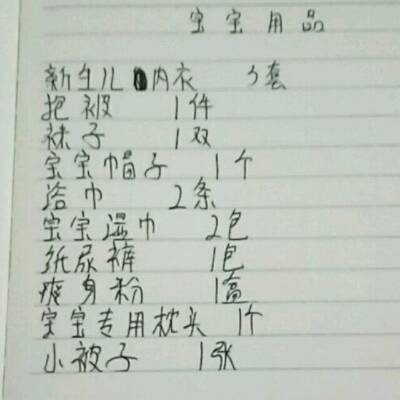 宝宝用品
新生儿内衣 3套
抱被 1件
袜子 1双
宝宝帽子 1个
浴巾 2条
宝宝湿巾 2包
纸尿裤 1包
爽身粉 1盒
宝宝专用枕头 1个
小被子 1张